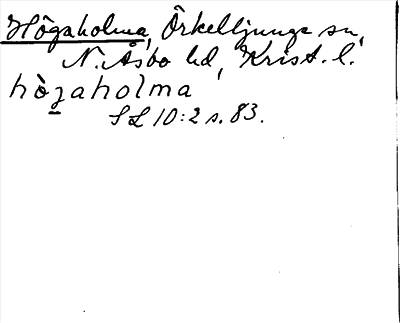 Högaholma, Örkelljunga sn,
N. Åsbo hd, Krist. l.
hògaholma
SL 10:2 s. 83.